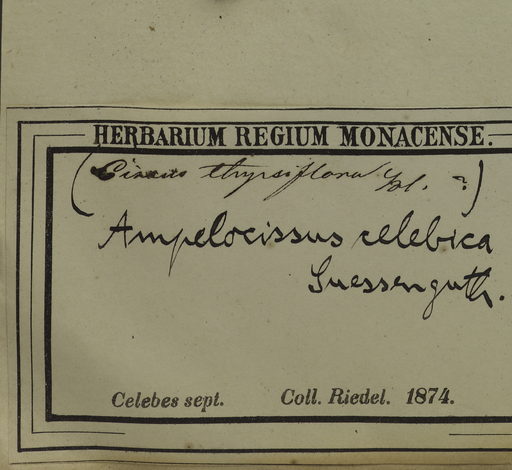 HERBARIUM REGIUM MONACENSE.
(Cissus thyrsiflora Bl. ?)
Ampelocissus celebica
Suessenguth.
Celebes sept. Coll. Riedel. 1874.